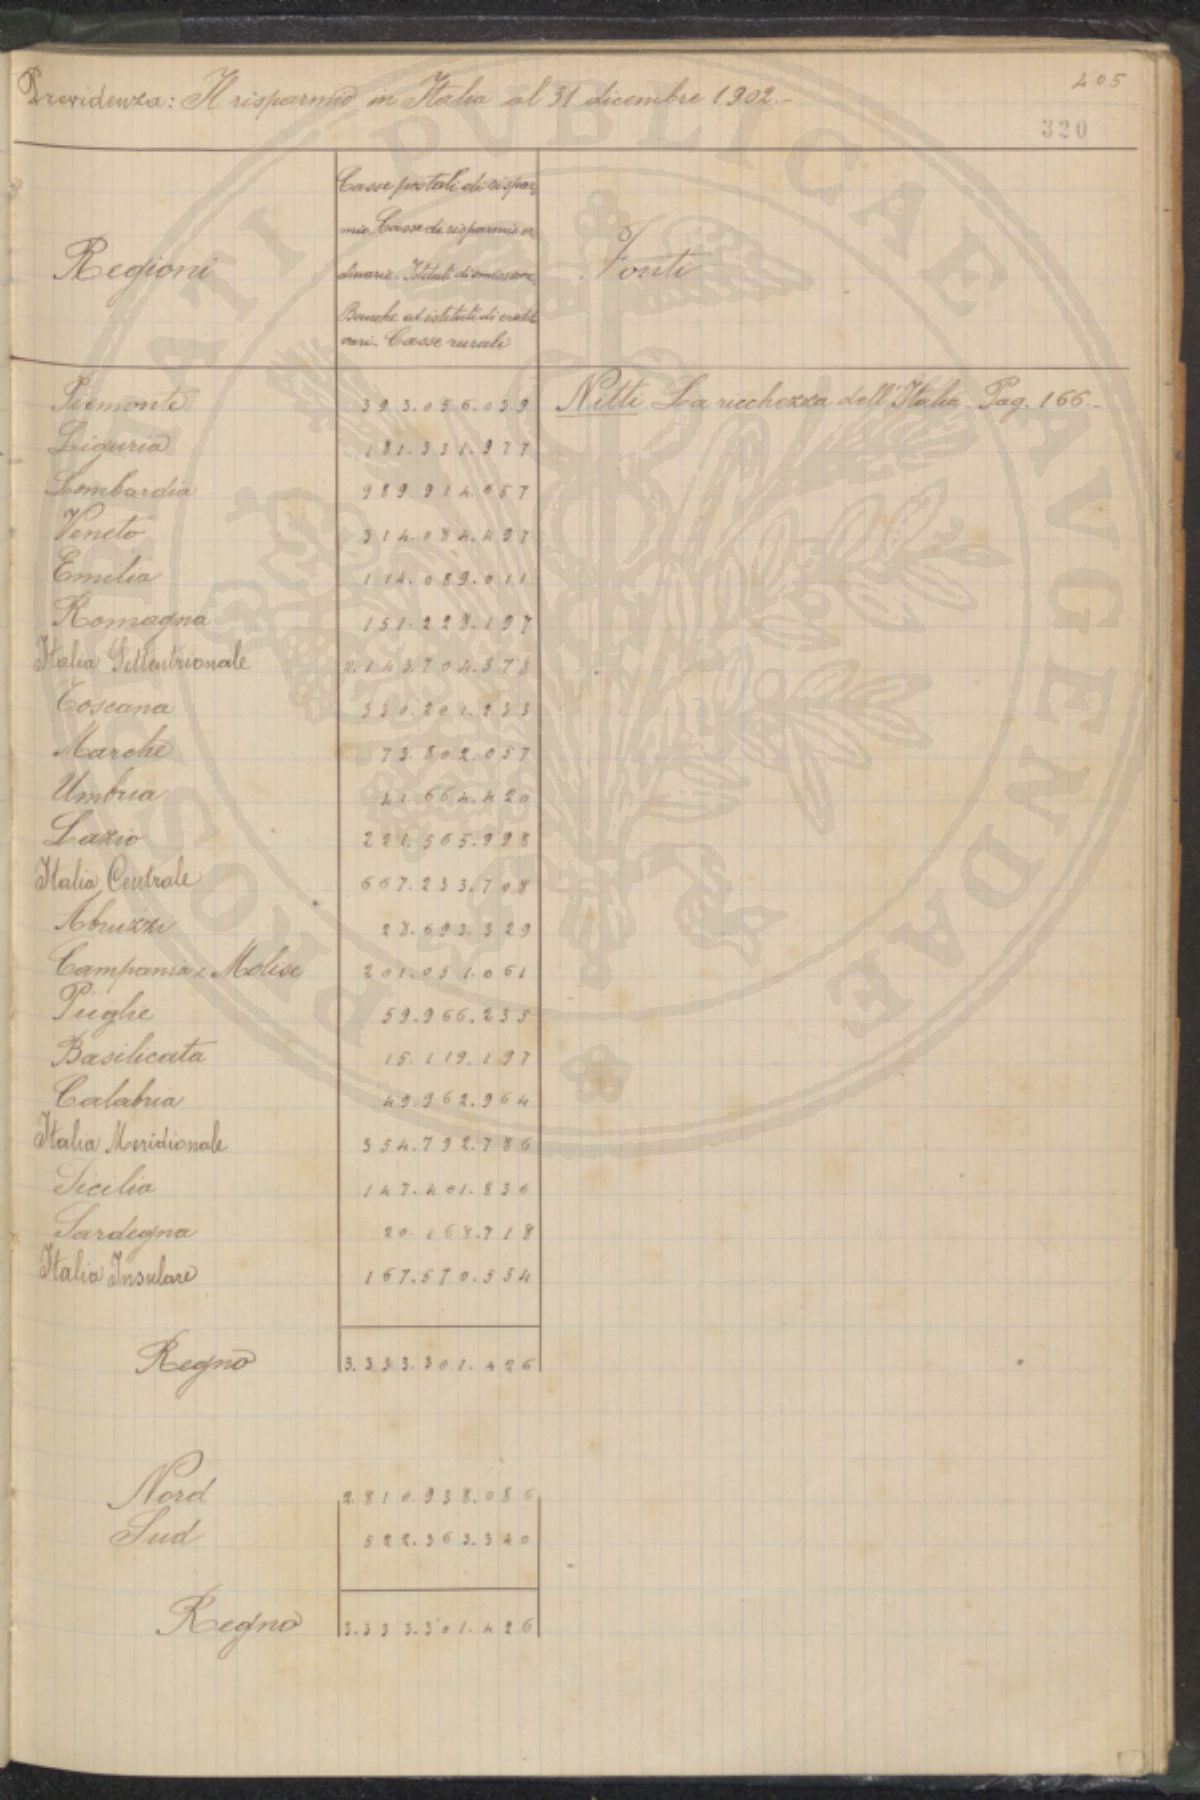 405
Previdenza: Il risparmio in Italia al 31 dicembre 1902.-
320
Regioni
Casse postali di rispar-
mio, Casse di risparmio or-
dinarie. Istituti di emissione,
Banche ed istituti di credito
vari. Casse rurali
Fonti
Piemonte 393.056.039 Nitti La ricchezza dell'Italia - Pag. 166.-
Liguria 181.331.977
Lombardia 989.914.657
Veneto 314.084.497
Emilia 114.089.011
Romagna 151.228.197
Italia Settentrionale 2.143.704.378
Toscana 330.201.233
Marche 73.802.057
Umbria 41.664.420
Lazio 221.565.998
Italia Centrale 667.233.708
Abruzzi 28.693.329
Campania e Molise 201.051.061
Puglie 59.966.235
Basilicata 15.119.197
Calabria 49.962.964
Italia Meridionale 354.792.786
Sicilia 147.401.836
Sardegna 20.168.718
Italia Insulare 167.570.554
Regno 3.333.301.426
Nord 2.810.938.086
Sud 522.363.340
Regno 3.333.301.426